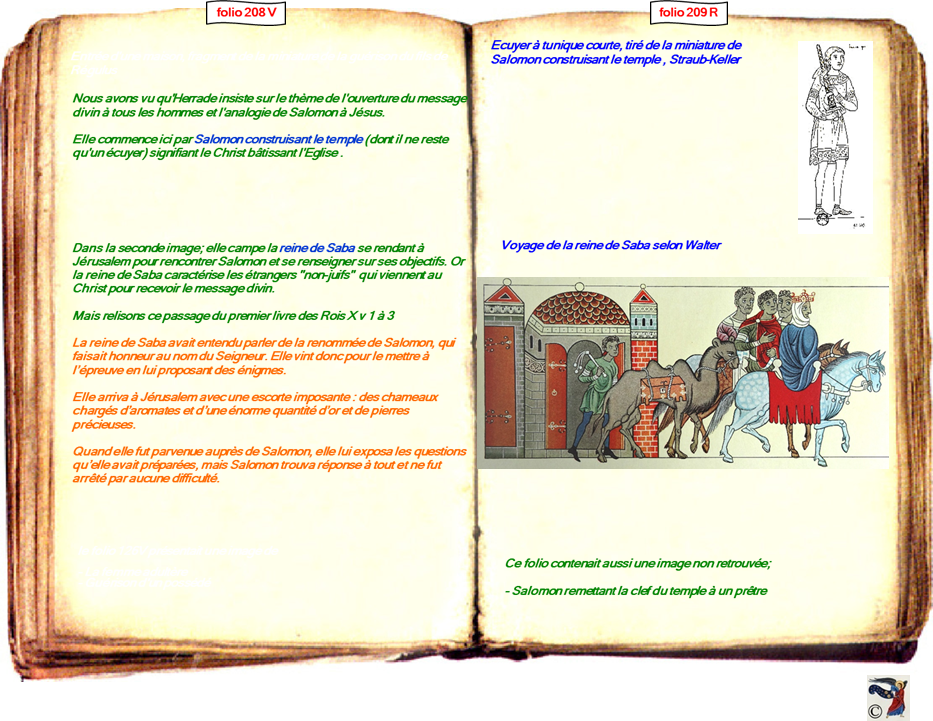 folio 208 V
Nous avons vu qu'Herrade insiste sur le thème de l'ouverture du message
divin à tous les hommes et l'analogie de Salomon à Jésus.
Elle commence ici par Salomon construisant le temple (dont il ne reste
qu'un écuyer) signifiant le Christ bâtissant l'Eglise .
Dans la seconde image; elle campe la reine de Saba se rendant à
Jérusalem pour rencontrer Salomon et se renseigner sur ses objectifs. Or
la reine de Saba caractérise les étrangers "non-juifs" qui viennent au
Christ pour recevoir le message divin.
Mais relisons ce passage du premier livre des Rois X v 1 à 3
La reine de Saba avait entendu parler de la renommée de Salomon, qui
faisait honneur au nom du Seigneur. Elle vint donc pour le mettre à
l'épreuve en lui proposant des énigmes.
Elle arriva à Jérusalem avec une escorte imposante : des chameaux
chargés d'aromates et d'une énorme quantité d'or et de pierres
précieuses.
Quand elle fut parvenue auprès de Salomon, elle lui exposa les questions
qu'elle avait préparées, mais Salomon trouva réponse à tout et ne fut
arrêté par aucune difficulté.
folio 209 R
Ecuyer à tunique courte, tiré de la miniature de
Salomon construisant le temple , Straub-Keller
Voyage de la reine de Saba selon Walter
Ce folio contenait aussi une image non retrouvée;
- Salomon remettant la clef du temple à un prêtre
©